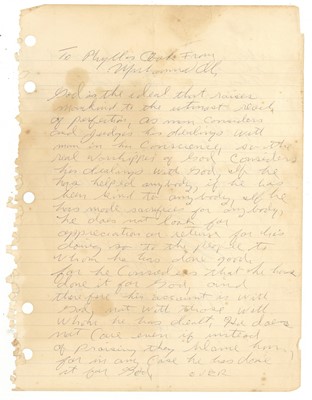 To Phyllis Cook From
Muhammad Ali
God is the ideal that raises
mankind to the utmost reach
of perfection, as man considers
and judges his dealings with
man in his Conscience, so the
real worshipper of God Considers
his dealings with God, if he
has helped anybody, if he has
been kind to anybody, if he
has made sacrifices for anybody,
he does not look for
appreciation or return for his
doing so to the people to
whom he has done good,
for he Considers that he has
done it for God, and
therefore his account is with
God, not with those with
whom he has dealt, He does
not Care even if instead
of Praising they blame him,
for in any Case he has done
it for God,